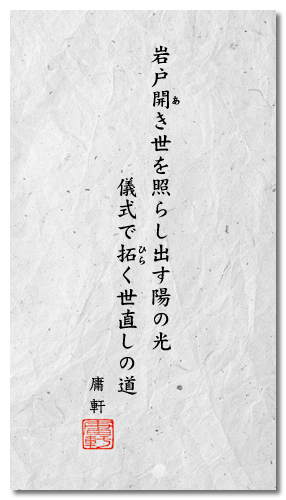 岩戸開き世を照らし出す陽の光
儀式で拓く世直しの道
庸軒